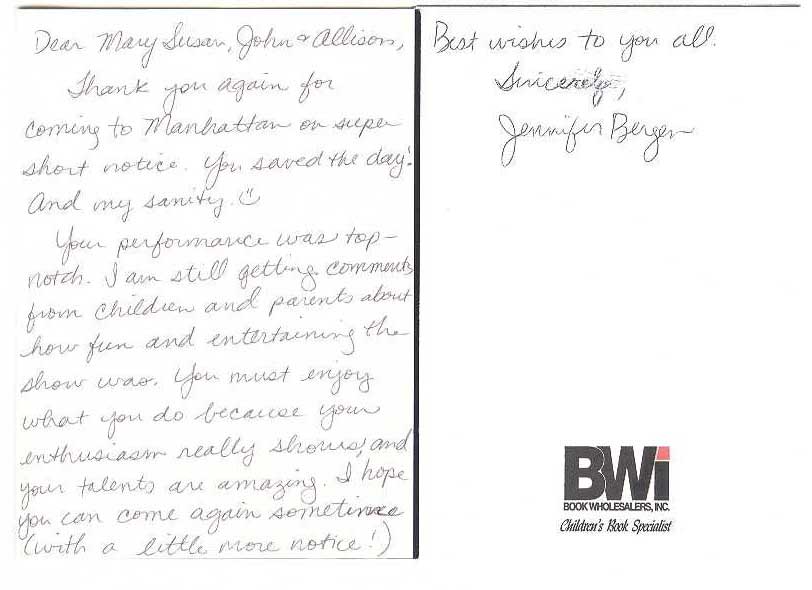 Dear Mary Susan, John & Allison,
Thank you again for
coming to Manhattan on super
short notice. You saved the day!
And my sanity. ☺
Your performance was top-
notch. I am still getting comments
from children and parents about
how fun and entertaining the
show was. You must enjoy
what you do because your
enthusiasm really shows, and
your talents are amazing. I hope
you can come again sometime
(with a little more notice!)
Best wishes to you all.
Sincerely,
Jennifer Bergen
BWi
BOOK WHOLESALERS, INC.
Children's Book Specialist